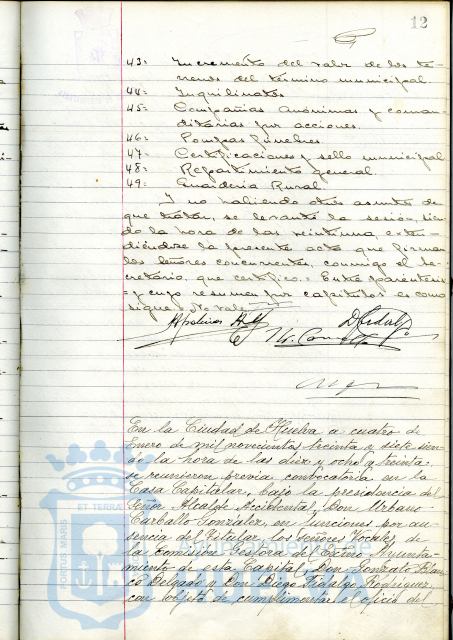 12
43= Incremento del valor de los te-
rrenos del término municipal.
44= Inquilinatos
45= Compañias Anónimas y coman-
ditarias por acciones.
46= Pompas fúnebres.
47= Certificaciones y sello municipal
48= Repartimiento general
49= Guardería Rural.
Y no habiendo otros asuntos de
que tratar, se levantó la sesión, sien-
do la hora de las veintiuna, exten-
diéndose la presente acta que firman
los señores concurrentes, conmigo el Se-
cretario, que certifico.= Entre parentesis
=y cuyo resumen por capitulos es como
sigue= No vale
En la Ciudad de Huelva a cuatro de
Enero de mil novecientos treinta y siete sien-
do la hora de las diez y ocho y treinta,
se reunieron previa convocatoria en la
Casa Capitular, bajo la presidencia del
Señor Alcalde Accidental, Don Urbano
Carballo Gonzalez, en funciones por au-
sencia del Titular, los Señores Vocales, de
la Comision Gestora del Excmo. Ayunta-
miento de esta Capital, Don Gonzalo Blan-
co Delgado y Don Diego Fidalgo Rodriguez,
con objeto de cumplimentar el oficio del
PORTUS MARIS
ET TERRAE